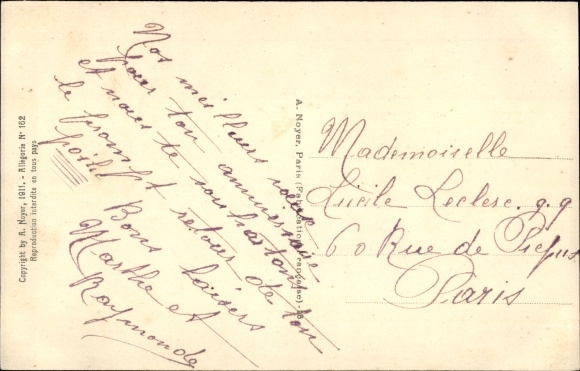 Nos meilleurs vœux
pour ton anniversaire
et nous te souhaitons
le prompt retour de ton
poilu Bons baisers
Marthe et
Raymonde
A. Noyer, Paris (Fabrication Française)
Mademoiselle
Lucile Leclerc
60 Rue de Picpus
Paris
Copyright by A. Noyer, 1911. - Allégorie N° 162
Reproduction interdite en tous pays